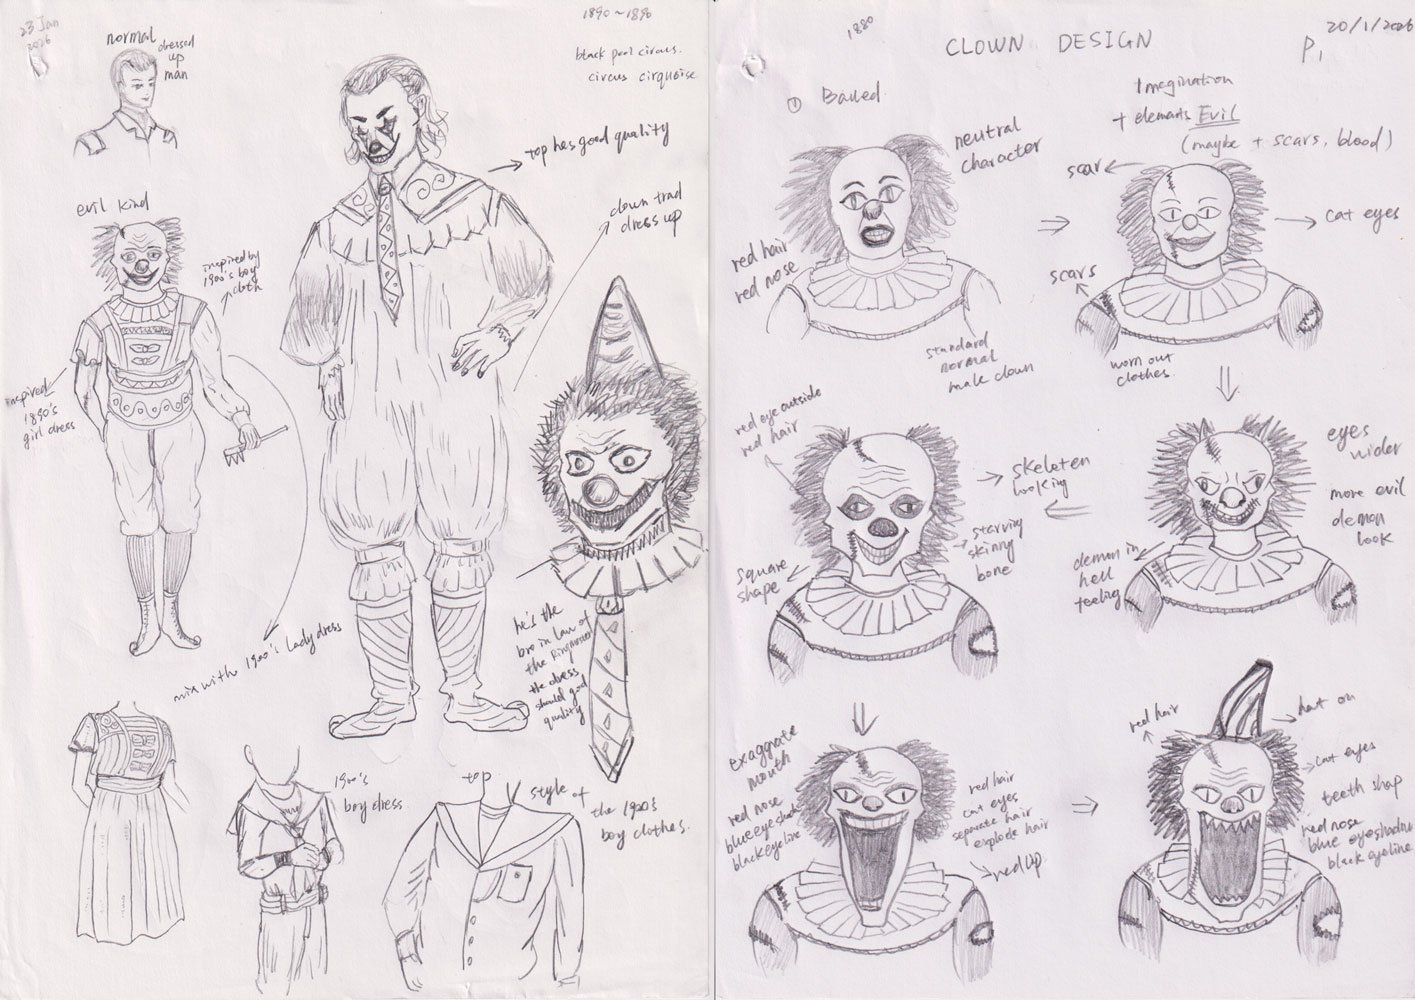 23 Jan
2026
normal
dressed
up
man
1890~1896
black pool circus.
circus cirquoise
top hes good quality
clown trad
dress up
evil kind
inspired by
1900's boy
cloth
inspired
1890's
girl dress
mix with 1900's Lady dress
he's the
bro in law of
the Ringmaster
the dress
should god
quality
1900's
boy dress
top
style of
the 1920's
boy clothes.
1880
CLOWN DESIGN
20/1/2026
P1
① Balled.
Imagination
+ elemants Evil
(maybe + scars, blood)
neutral
character
red hair
red nose
standard
normal
male clown
scar
cat eyes
scars
worn out
clothes
red eye outside
red hair
skeleten
looking
starving
skinny
bone
square
shape
eyes
wider
more evil
demon
look
demon in
hell
feeling
exaggrate
mouth
red nose
blue eye shadow
black eyeline
red hair
cat eyes
separate hair
explode hair
red lip
red hair
hat on
cat eyes
teeth shap
red nose
blue eyeshadow
black eyeline